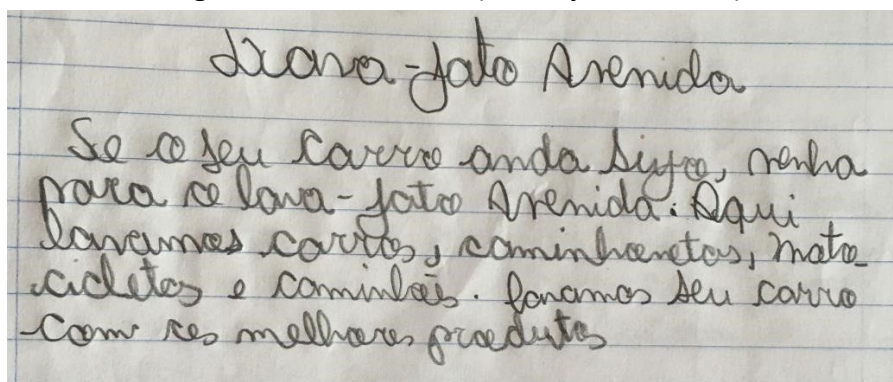 Lava-jato Avenida
Se o seu carro anda sujo, venha
para o lava-jato Avenida. Aqui
lavamos carros, caminhonetas, moto
cicletas e caminhões. lavamos seu carro
com os melhores produtos